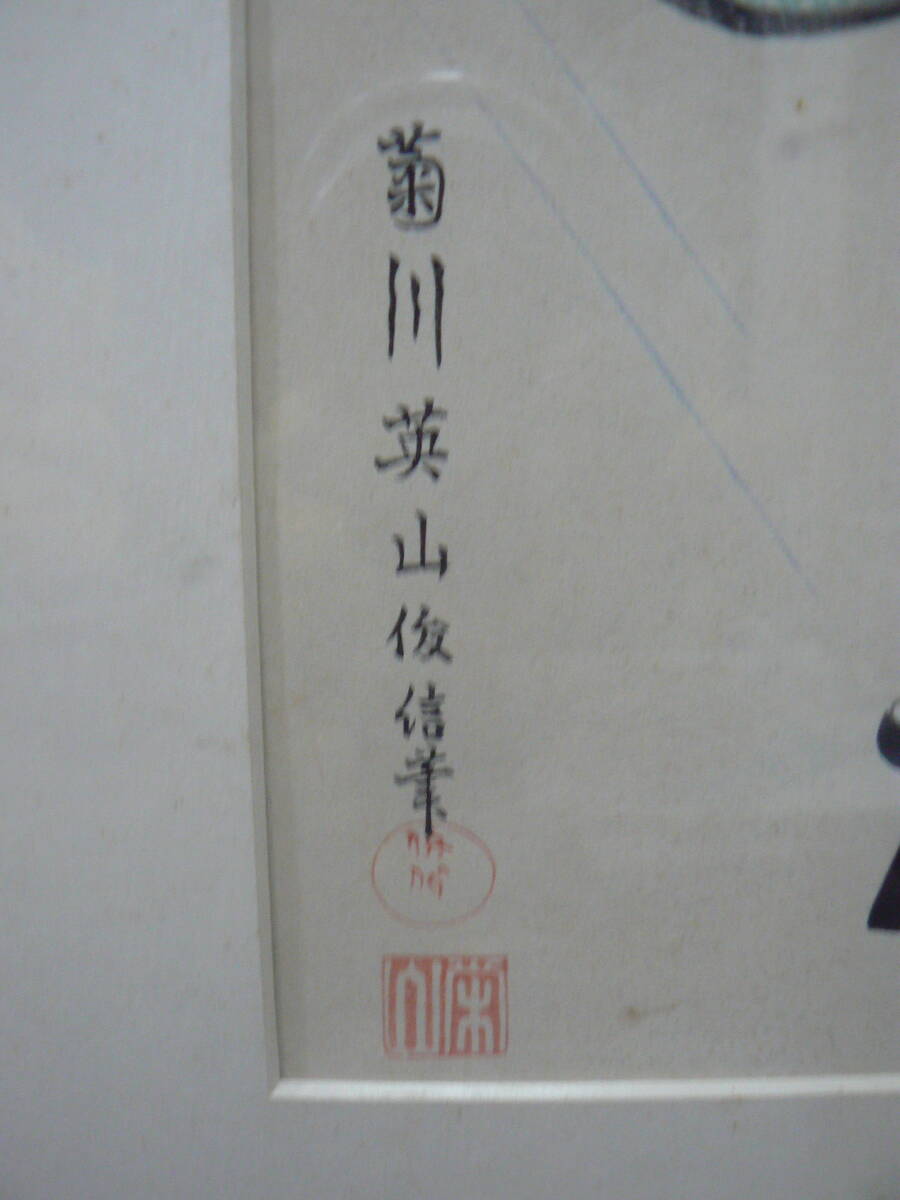 菊川英山俊信筆